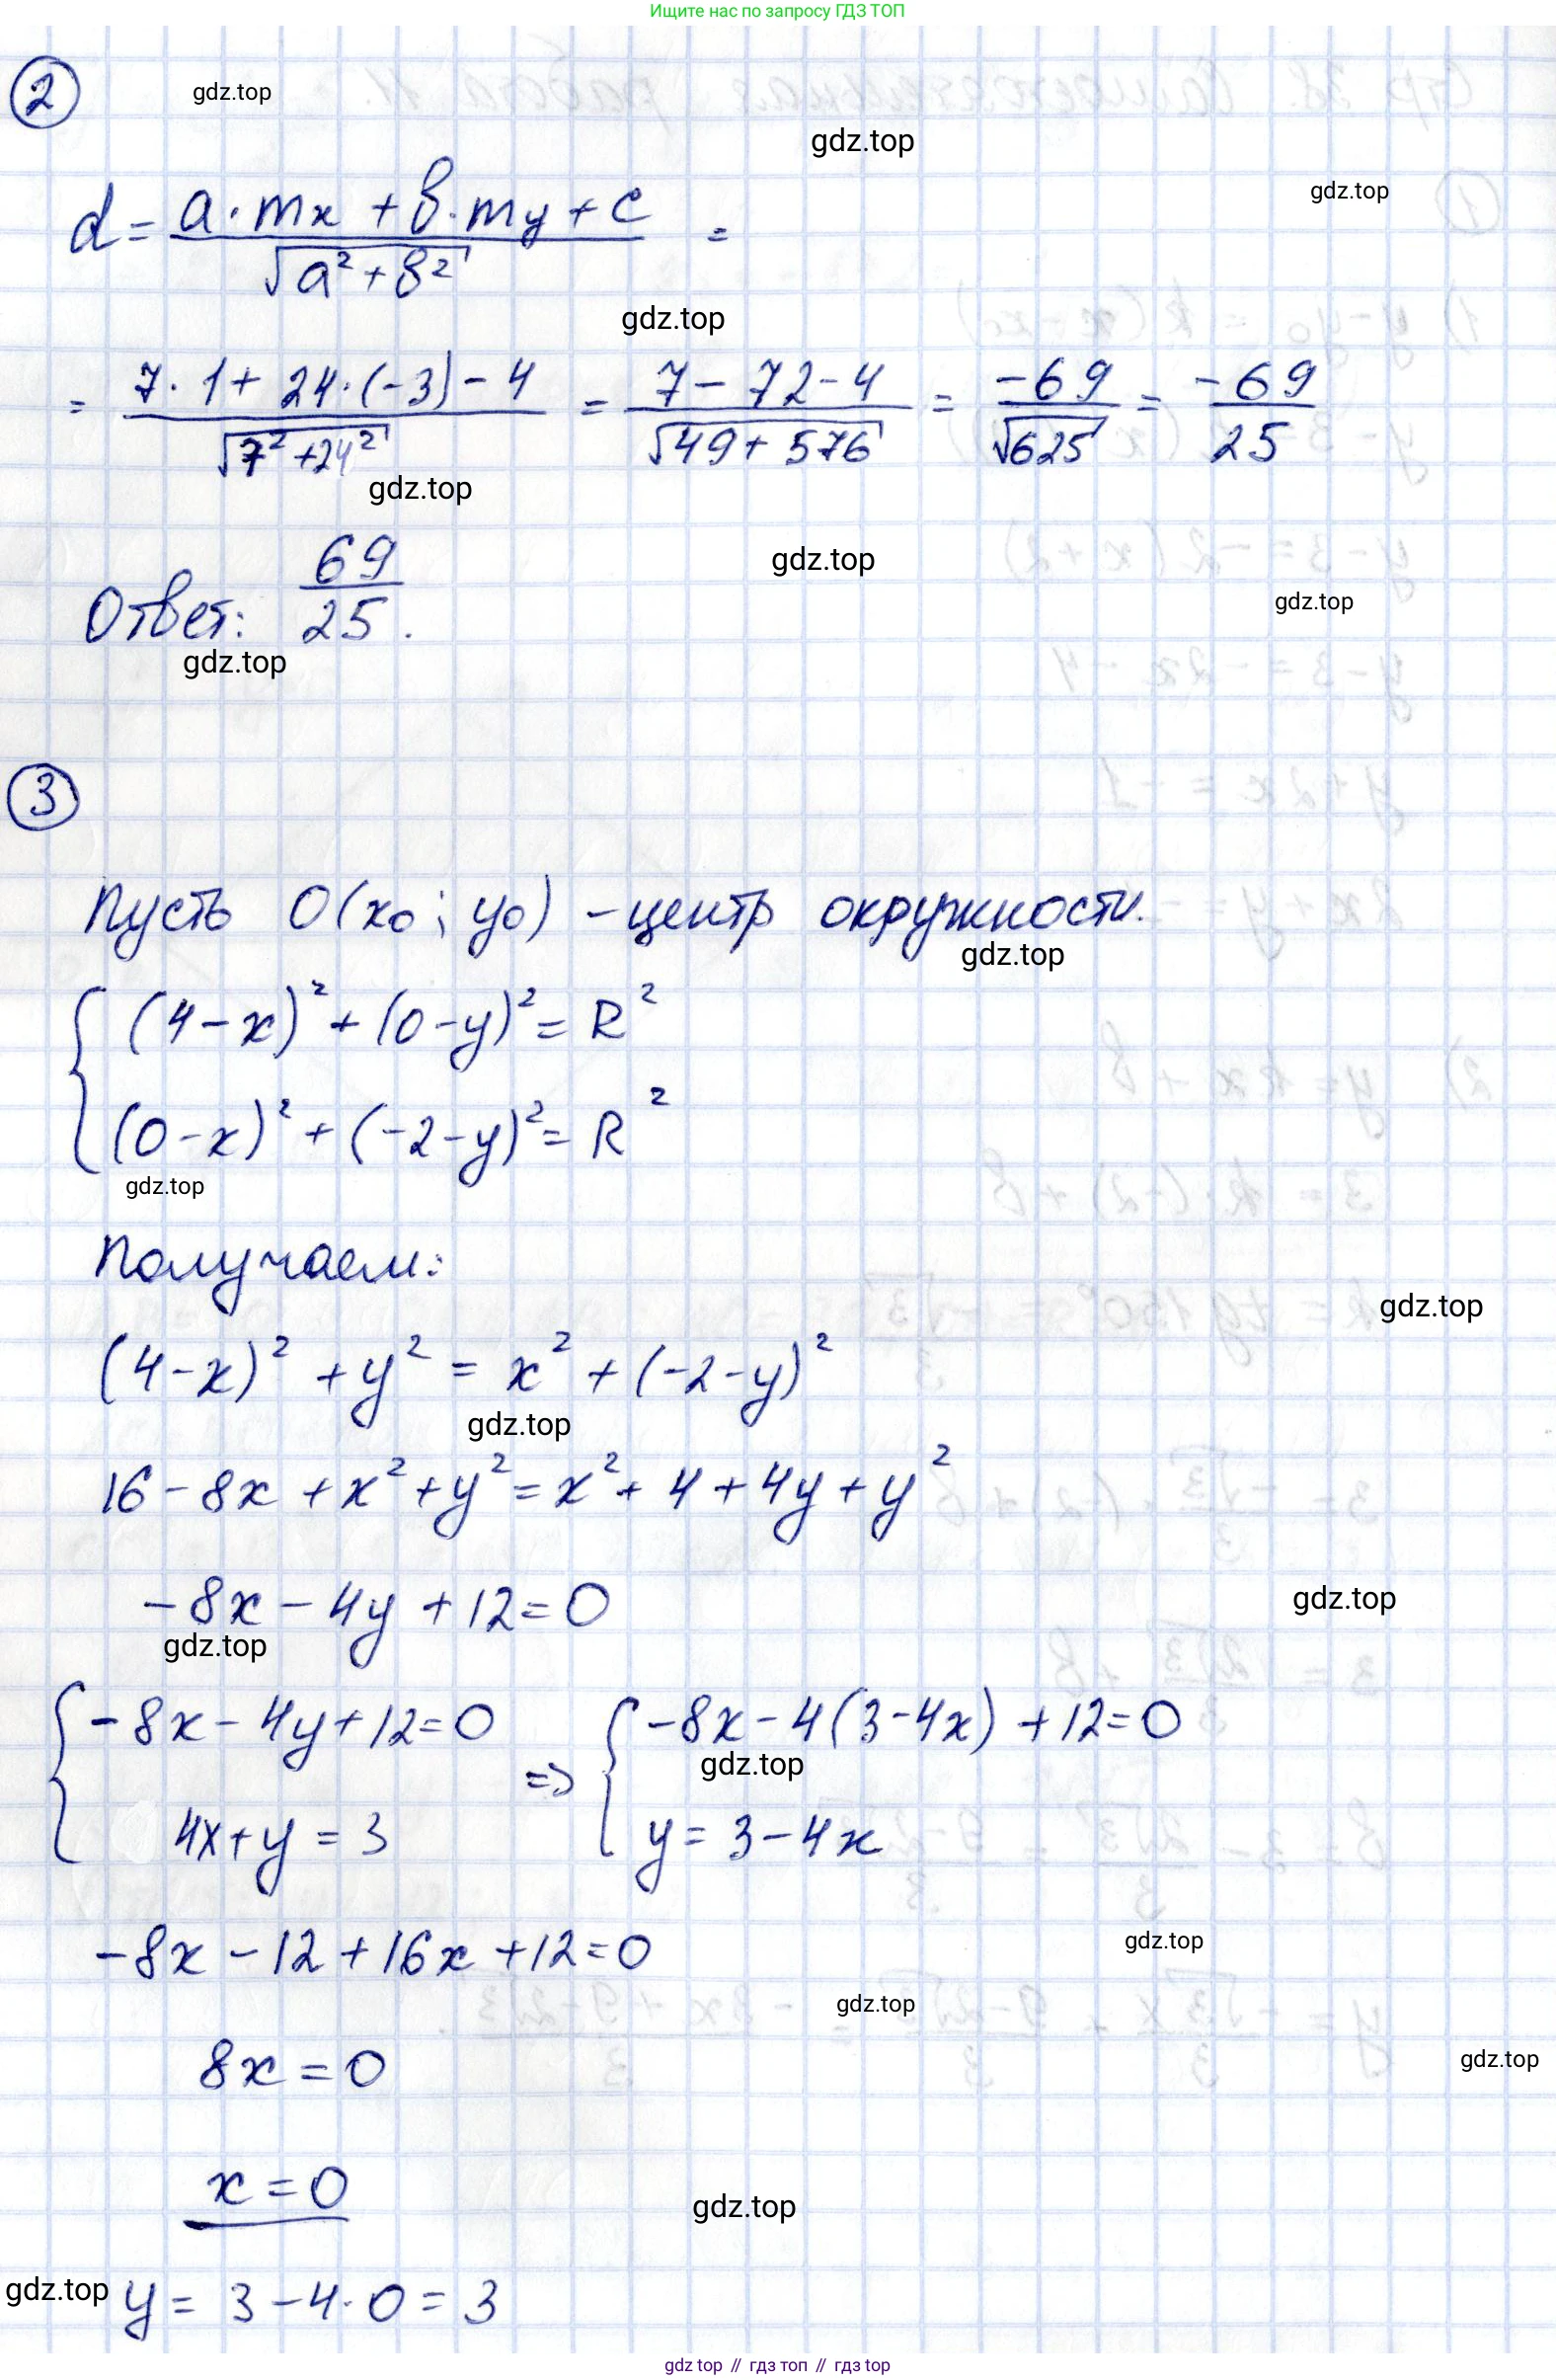 Ищите нас по запросу ГДЗ ТОП
2
gdz.top
gdz.top
gdz.top
d = (a · mx + b · my + c) / √(a² + b²) =
gdz.top
= (7 · 1 + 24 · (-3) - 4) / √(7² + 24²) = (7 - 72 - 4) / √(49 + 576) = -69 / √625 = -69 / 25
gdz.top
gdz.top
Ответ: 69/25.
gdz.top
gdz.top
3
Пусть O(x₀; y₀) - центр окружности.
gdz.top
{ (4 - x)² + (0 - y)² = R²
(0 - x)² + (-2 - y)² = R²
gdz.top
Получаем:
gdz.top
(4 - x)² + y² = x² + (-2 - y)²
gdz.top
16 - 8x + x² + y² = x² + 4 + 4y + y²
-8x - 4y + 12 = 0
gdz.top
gdz.top
{ -8x - 4y + 12 = 0 => { -8x - 4(3 - 4x) + 12 = 0
gdz.top
4x + y = 3 y = 3 - 4x
gdz.top
-8x - 12 + 16x + 12 = 0
gdz.top
8x = 0
gdz.top
x = 0
gdz.top
gdz.top
y = 3 - 4 · 0 = 3
gdz top // гдз топ // гдз top